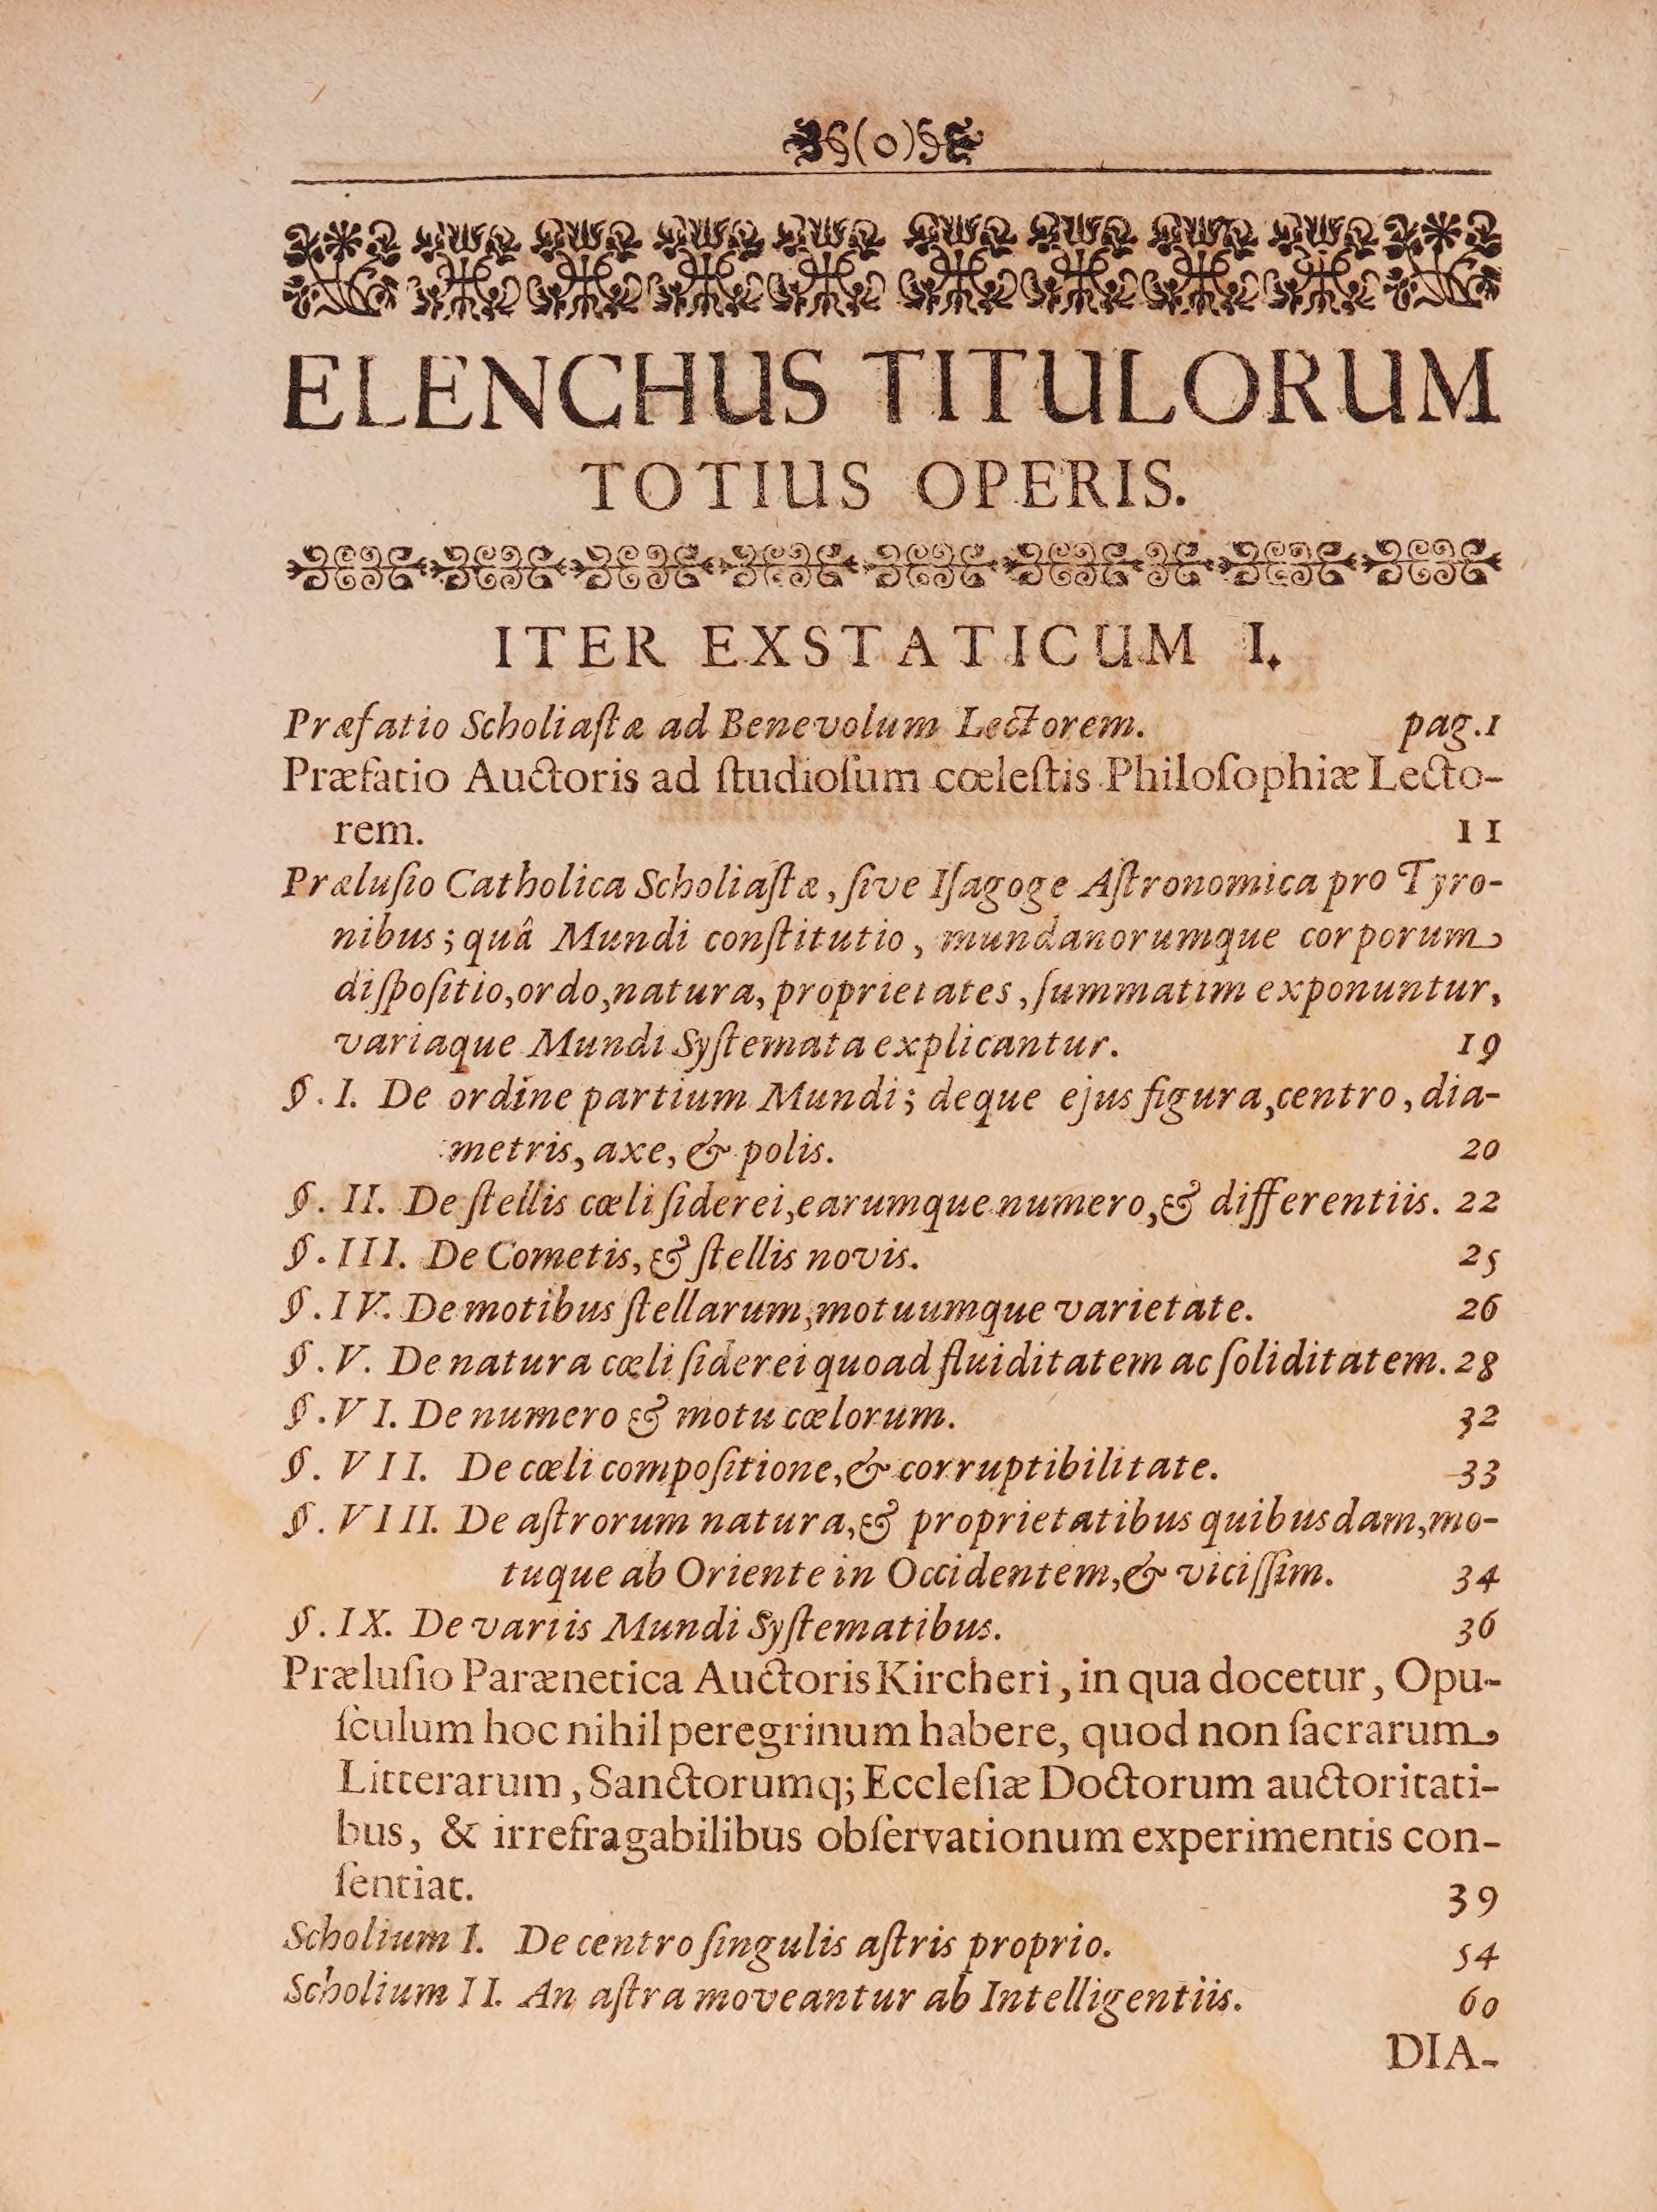 (o)
ELENCHUS TITULORUM
TOTIUS OPERIS.
ITER EXSTATICUM I.
Præfatio Scholiaſtæ ad Benevolum Lectorem. pag.1
Præfatio Auctoris ad ſtudioſum cœleſtis Philoſophiæ Lecto-
rem. 11
Præluſio Catholica Scholiaſtæ, ſive Iſagoge Aſtronomica pro Tyro-
nibus; quâ Mundi conſtitutio, mundanorumque corporum
diſpoſitio, ordo, natura, proprietates, ſummatim exponuntur,
variaque Mundi Syſtemata explicantur. 19
§. I. De ordine partium Mundi; deque ejus figura, centro, dia-
metris, axe, & polis. 20
§. II. De ſtellis cœli ſiderei, earumque numero, & differentiis. 22
§. III. De Cometis, & ſtellis novis. 25
§. IV. De motibus ſtellarum, motuumque varietate. 26
§. V. De natura cœli ſiderei quoad fluiditatem ac ſoliditatem. 28
§. VI. De numero & motu cœlorum. 32
§. VII. De cœli compoſitione, & corruptibilitate. 33
§. VIII. De aſtrorum natura, & proprietatibus quibusdam, mo-
tuque ab Oriente in Occidentem, & viciſſim. 34
§. IX. De variis Mundi Syſtematibus. 36
Præluſio Parænetica Auctoris Kircheri, in qua docetur, Opu-
ſculum hoc nihil peregrinum habere, quod non ſacrarum
Litterarum, Sanctorumq; Eccleſiæ Doctorum auctoritati-
bus, & irrefragabilibus obſervationum experimentis con-
ſentiat. 39
Scholium I. De centro ſingulis aſtris proprio. 54
Scholium II. An aſtra moveantur ab Intelligentiis. 60
DIA-